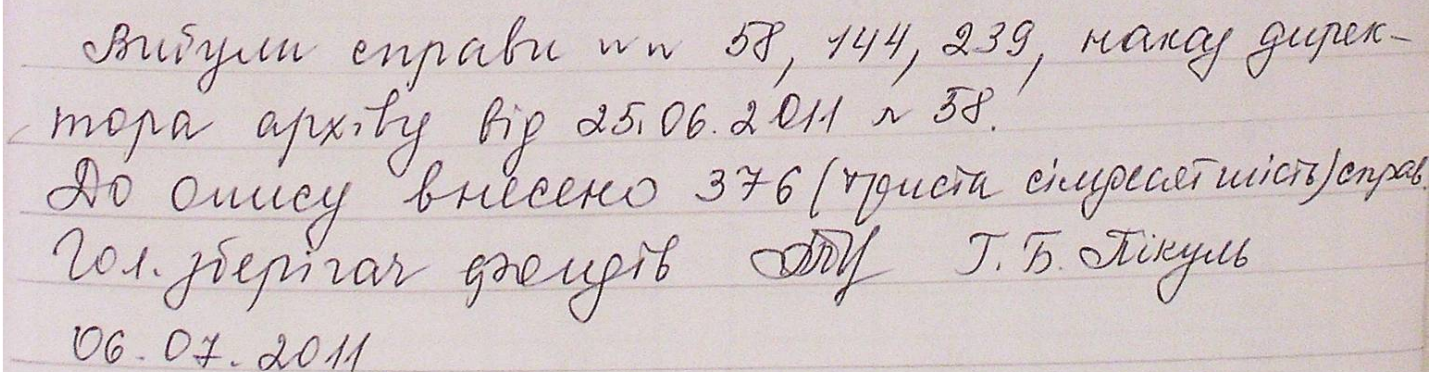 Вибули справи №№ 58, 144, 239, наказ дирек-
тора архіву від 25.06.2011 № 58.
До опису внесено 376 (триста сімдесят шість) справ.
Гол. зберігач фондів Г.Б. Пікуль
06.07.2011